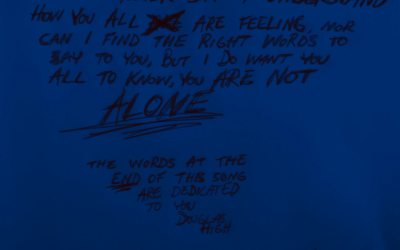 UNDERSTAND
HOW YOU ALL ARE FEELING, NOR
CAN I FIND THE RIGHT WORDS TO
SAY TO YOU, BUT I DO WANT YOU
ALL TO KNOW, YOU ARE NOT
ALONE
THE WORDS AT THE
END OF THIS SONG
ARE DEDICATED
TO YOU
DOUGLAS
HIGH